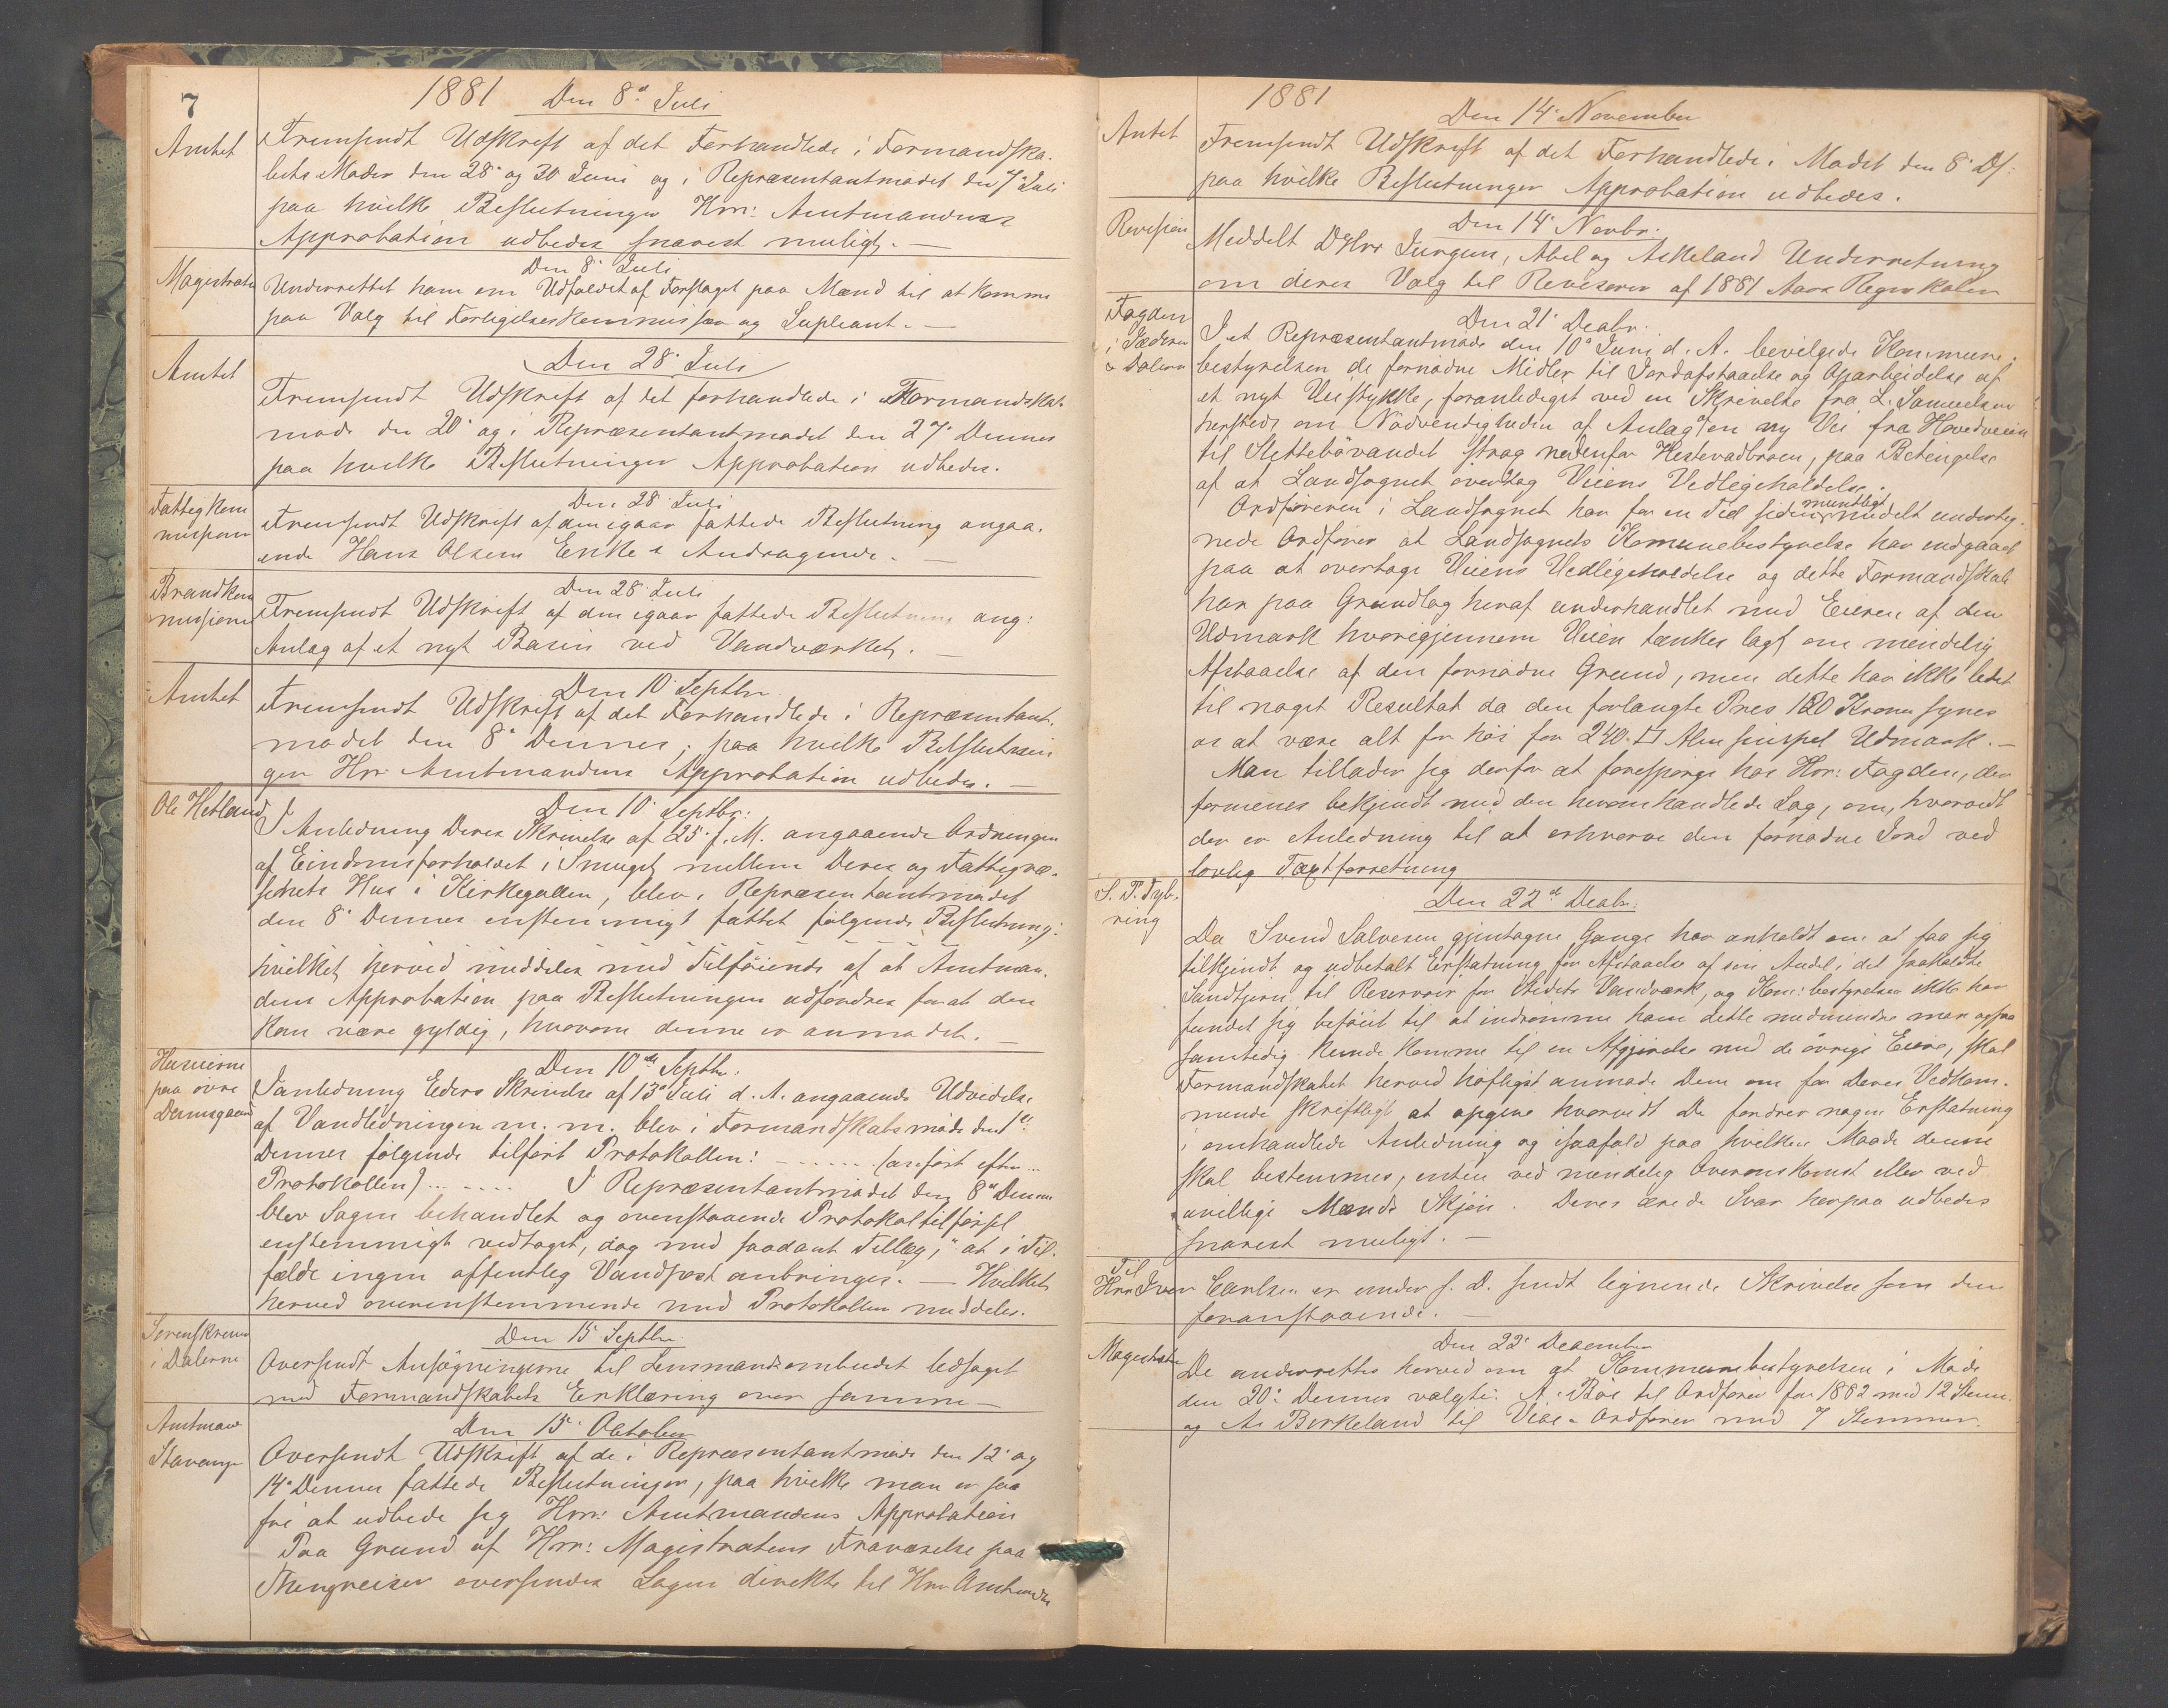 7
1881 Den 8de Juli
Amtet
Fremsendt Udskrift af det Forhandlede i Formandska-
bets Møder den 28de og 30 Juni og i Repræsentantmødet den 7de Juli
paa hvilke Beslutninger Hrr: Amtmandens
Approbation udbedes snarest muligt. —
Den 8de Juli
Magistraten
Underrettet ham om Udfaldet af Forslaget paa Mænd til at komme
paa Valg til Forligelseskommissær og Supleant. —
Den 28de Juli
Amtet
Fremsendt Udskrift af det forhandlede i Formandskabs-
møde den 20de og i Repræsentantmødet den 27de Dennes
paa hvilke Beslutninger Approbation udbedes.
Den 28de Juli
Fattigkom
missionen
Fremsendt Udskrift af den igaar fattede Beslutning angaa-
ende Hans Olsens Enkes Andragende. —
Den 28de Juli
Brandkom
missionen
Fremsendt Udskrift af den igaar fattede Beslutning ang:
Anlæg af et nyt Basin ved Vandværket. —
Den 10de Septbr.
Amtet
Fremsendt Udskrift af det Forhandlede i Repræsentant-
mødet den 8de Dennes, paa hvilke Beslutnin
ger Hrr Amtmandens Approbation udbedes. —
Den 10de Septbr:
Ole Hetland
I Anledning Deres Skrivelse af 25de f. M. angaaende Ordningen
af Eiendomsforholdet i Smuget mellem Deres og Fattigvæ-
senets Hus i Kirkegaden, blev i Repræsentantmødet
den 8de Dennes enstemmigt fattet følgende Beslutning:
hvilket herved meddeles med Tilføiende af at Amtman-
dens Approbation paa Beslutningen udfordres forat den
kan være gyldig, hvorom denne er anmodet. —
Den 10de Septbr.
Huseierne
paa øvre
Damsgaard
I anledning Eders Skrivelse af 13de Juli d. A. angaaende Udvidelse
af Vandledningen m. m. blev i Formandskabsmøde den 1ste
Dennes følgende tilført Protokollen: - - - - - - (anført efter...
Protokollen) ... - - - - I Repræsentantmødet den 8de Dennes
blev Sagen behandlet og ovenstaaende Protokoltilførsel
enstemmigt vedtaget, dog med saadant Tillæg, "at i Til-
fælde ingen offentlig Vandpost anbringes. — Hvilket
herved overenstemmende med Protokollen meddeles.
Den 15 Septbr.
Sorenskriveren
i Dalerne
Oversendt Ansøgningerne til Lensmandsombudet ledsaget
med Formandskabets Erklæring over samme —
Den 15de Oktober
Amtmand
Stavanger
Oversendt Udskrift af de i Repræsentantmøde den 12te og
14de Dennes fattede Beslutninger, paa hvilke man er saa
fri at udbede sig Hrr: Amtmandens Approbation
Paa Grund af Hrr: Magistratens Fraværelse paa
Thingreiser oversendes Sagen direkte til Hrr Amtmanden
1881
Den 14de November
Amtet
Fremsendt Udskrift af det Forhandlede i Mødet den 8de Ds:
paa hvilke Beslutninger Approbation udbedes.
Den 14de Novbr.
Revision
Meddelt DHrr Jurgens, Abel og Askeland Underretning
om deres Valg til Revisorer af 1881 Aars Regnskaber
Den 21de Decbr.
Fogden
i Jæderen
& Dalerne
I et Repræsentantmøde den 10de Juni d. A. bevilgede Kommune-
bestyrelsen de fornødne Midler til Jordafstaaelse og Oparbeidelse af
et nyt Veistykke, foranlediget ved en Skrivelse fra L. Samuelsen
hersteds om Nødvendigheden af Anlæg af en ny Vei fra Hovedveien
til Slettebøvandet strax nedenfor Hestevadbroen, paa Betingelse
af at Landsognet overtog Veiens Vedligeholdelse.
Ordføreren i Landsognet har for en Tid siden mundtligt meddelt underteg-
nede Ordfører at Landsognets Komunebestyrelse har indgaaet
paa at overtage Veiens Vedligeholdelse og dette Formandskab
har paa Grundlag heraf underhandlet med Eieren af den
Udmark hvorigjennem Veien tænkes lagt om mindelig
Afstaaelse af den fornødne Grund, men dette har ikke ledet
til noget Resultat da den forlangte Pris 180 Kroner synes
os at være alt for høi for 240 □ Alen simpel Udmark. —
Man tillader sig derfor at forespørge hos Hrr: Fogden, der
formenes bekjendt med den heromhandlede Sag, om, hvorvidt
der er Anledning til at erhverve den fornødne Jord ved
lovlig Taxtforretning
Den 22de Decbr.
S. P. Fyl-
ring
Da Svend Salvesen gjentagne Gange har anholdt om at faa sig
tilkjendt og udbetalt Erstatning for Afstaaelse af sin Andel i det saakaldte
Sandtjern til Reservoir for Stedets Vandværk, og Kom: bestyrelsen ikke har
fundet sig beføiet til at indrømme ham dette medmindre man ogsaa
samtidig kunde komme til en Afgjørelse med de øvrige Eiere, skal
Formandskabet herved høfligst anmode Dem om for Deres Vedkom-
mende skriftligt at opgive hvorvidt De fordrer nogen Erstatning
i omhandlede Anledning og isaafald paa hvilken Maade denne
skal bestemmes, enten ved mindelig Overenskomst eller ved
uvillige Mænds Skjøn. Deres ærede Svar herpaa udbedes
snarest muligt. —
Til
Hrr Iver Carlsen er under s. D. sendt lignende Skrivelse som den
foranstaaende. —
Den 22de December
Magistraten
De underrettes herved om at Kommunebestyrelsen i Møde
den 20de Dennes valgte: A. Bøe til Ordfører for 1882 med 12 Stem.
og A. Birkeland til Vice-Ordfører med 7 Stemmer.